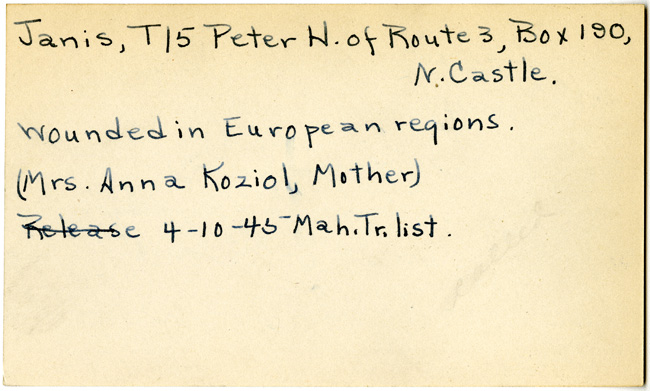 Janis, T/5 Peter H. of Route 3, Box 190,
N. Castle.
Wounded in European regions.
(Mrs. Anna Koziol, Mother)
Release 4-10-45 Mah. Tr. list.